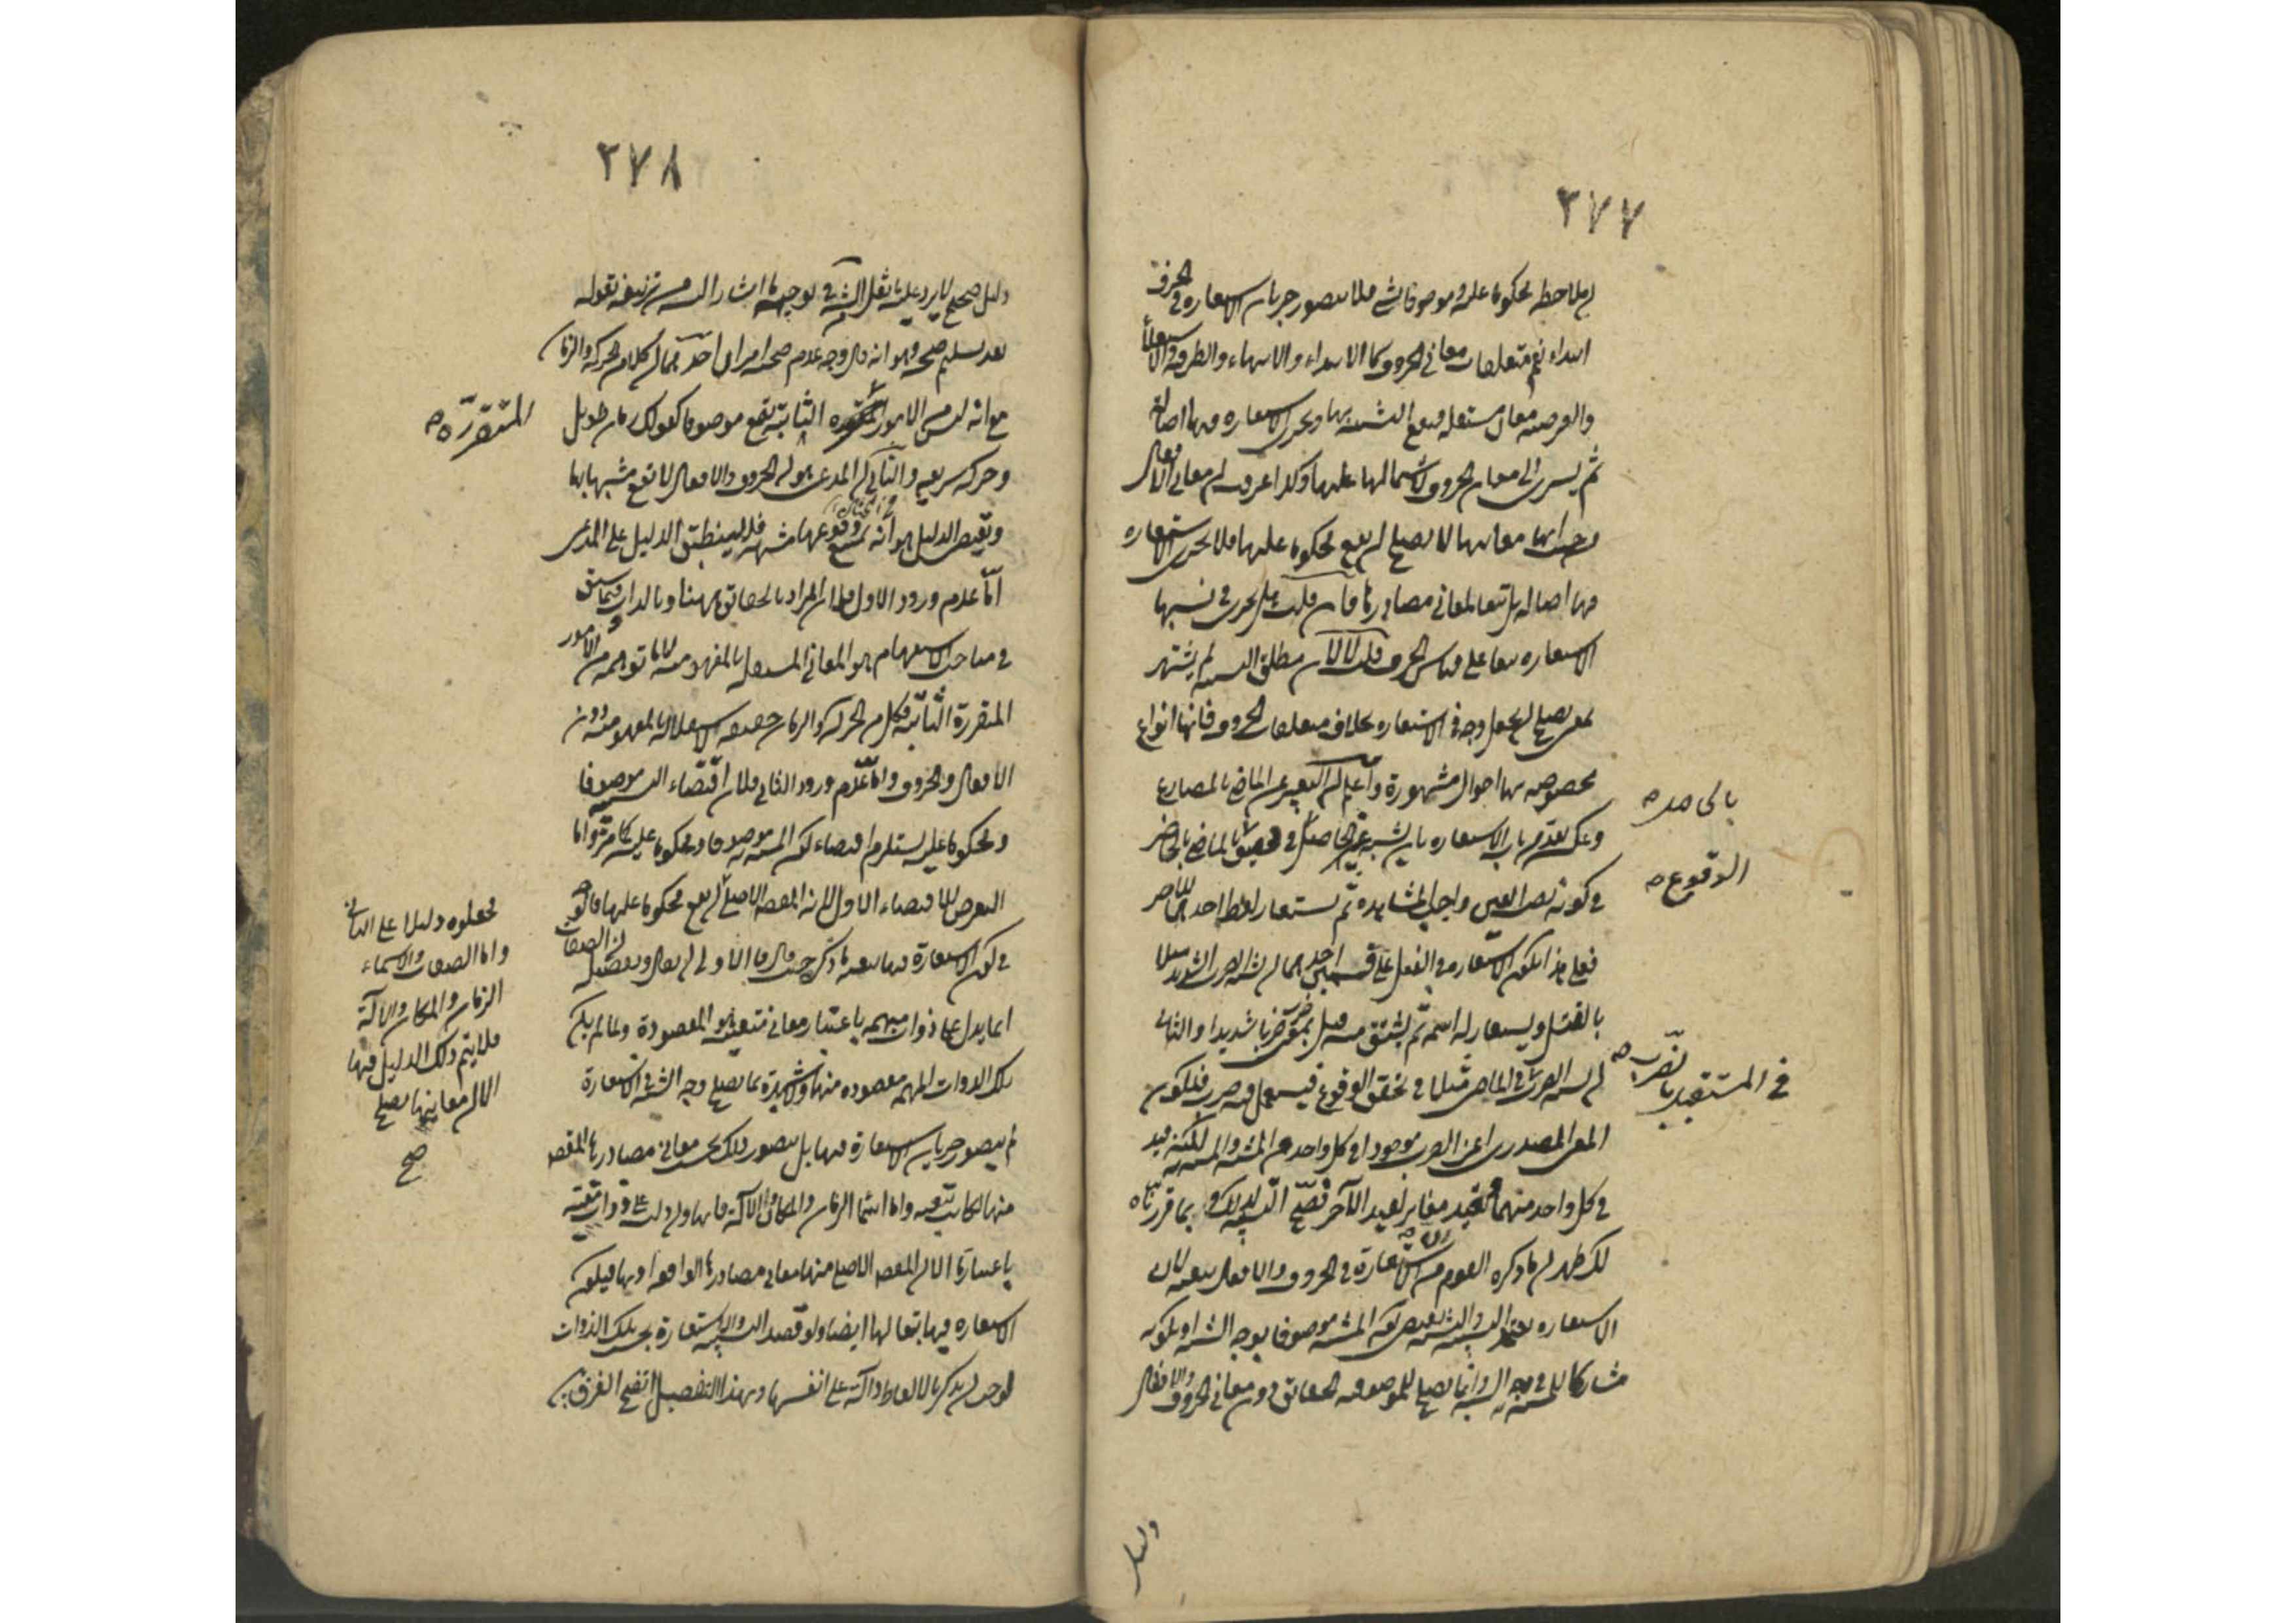 ٢٧٧
ان يلاحظ محكوما عليه وموصوفا بشئ فلا يتصور جريان الاستعارة في الحرف
ابتداء نعم متعلقات معاني الحروف كالابتداء والانتهاء والظرفية والاستعلاء
والغرضية معان مستقلة فيقع التشبيه بها وتجري الاستعارة فيها اصالة
ثم يسرى الى معاني الحروف لاشتمالها عليها وكذا عرفت ان معاني الافعال
من حيث انها معانيها لا يصلح ان يقع محكوما عليها فلا تجري الاستعارة
فيها اصالة بل تبعا لمعاني مصادرها فان قلت هل تجري في نسبها
الاستعارة تبعا على قياس الحرف قلت لا لان مطلق النسبة لم يشتهر
بمعنى يصلح ان يجعل وجه في الاستعارة بخلاف متعلقات الحروف فانها انواع
مخصوصة لها احوال مشهورة واعلم ان التعبير عن الماضي بالمضارع
وعكسه يعد من باب الاستعارة بان يشبه غير الحاصل في تحقق بالماضي بالحاضر
بالحاصل
في كونه نصب العين واجب المشاهدة ثم يستعار لفظ احدهما للآخر
الوقوع
فعلى هذا تكون الاستعارة في الفعل على قسمين احدهما ان يشبه الضرب الشديد مثلا
بالقتل ويستعار له اسمه ثم يشتق منه قتل بمعنى ضرب ضربا شديدا والثاني
ان يشبه الضرب في الماضي مثلا في تحقق الوقوع فيستعمل فيه ضرب فيكون
في المستقبل بالضرب
المعنى المصدري اعني الضرب موجودا في كل واحد من المشبه والمشبه به لكنه قيد
في كل واحد منهما بقيد مغاير لقيد الآخر فصح التشبيه لذلك وبما قررناه
لك ظهر ان ما ذكره القوم من ان الاستعارة في الحروف والافعال تبعية لان
الاستعارة تعتمد التشبيه والتشبيه يقتضي كون المشبه موصوفا بوجه الشبه او بكونه
مشاركا للمشبه به في وجه الشبه وانما يصلح للموصوفية الحقائق دون معاني الحروف والافعال
دليل
٢٧٨
دليل صحيح لا يرد عليه ما نقل الشيخ في توجيه ما اشار اليه من تزييفه بقوله
بعد تسليم صحته وهو انه قال وجه عدم صحته امران احدهما ان كلا من الحركة والزمان
مع انه ليس من الامور المتقررة الثابتة يقع موصوفا كقولك زمان طويل
المتقررة
وحركة سريعة والثاني ان المدعى هو ان الحروف والافعال لا تقع مشبها بها
ومقتضى الدليل هو انه يمتنع وقوعها مشبهة فلا ينطبق الدليل على المدعى
اما عدم ورود الاول فلان المراد بالحقائق ههنا وبالذات فيما سبق
في مباحث الاستفهام هو المعاني المستقلة بالمفهومية لا ما توهمه من الامور
المتقررة الثابتة فكل من الحركة والزمان حقيقة لاستقلاله بالمفهومية دون
الافعال والحروف واما عدم ورود الثاني فلان اقتضاء التشبيه موصوفا
ومحكوما عليه يستلزم اقتضاء كون المشبه به موصوفا ومحكوما عليه كما مر واما
التعرض للاقتضاء الاول لانه المقصد الاصلي ان يقع محكوما عليها
في كون الاستعارة فيها تبعية ما ذكر حيث قال فالاولى ان يقال وتفصيله ان الصفات
انما يدل على ذوات مبهمة باعتبار معاني متعينة هو المقصودة ولما لم يكن
تلك الذوات المبهمة مقصودة منها ومشتهرة بما يصلح وجه الشبه في الاستعارة
لم يتصور جريان الاستعارة فيها بل يتصور ذلك بحسب معاني مصادرها المقصودة
منها فكانت تبعية واما اسما الزمان والمكان والآلة فانها وان دلت على ذوات متعينة
باعتبارها الا ان المقصد الاصلي منها معاني مصادرها الواقعة فيها فيكون
الاستعارة فيها تبعا لها ايضا ولو قصد التشبيه والاستعارة بحسب تلك الذوات
لوجب ان يذكر بالالفاظ الدالة على انفسها وبهذا التفصيل اتضح الفرق بين
فجعلوه دليلا على الثاني
واما الصفات والاسماء
الزمان والمكان والآلة
فلا يتم ذلك الدليل فيها
الا ان معانيها يصلح
صح